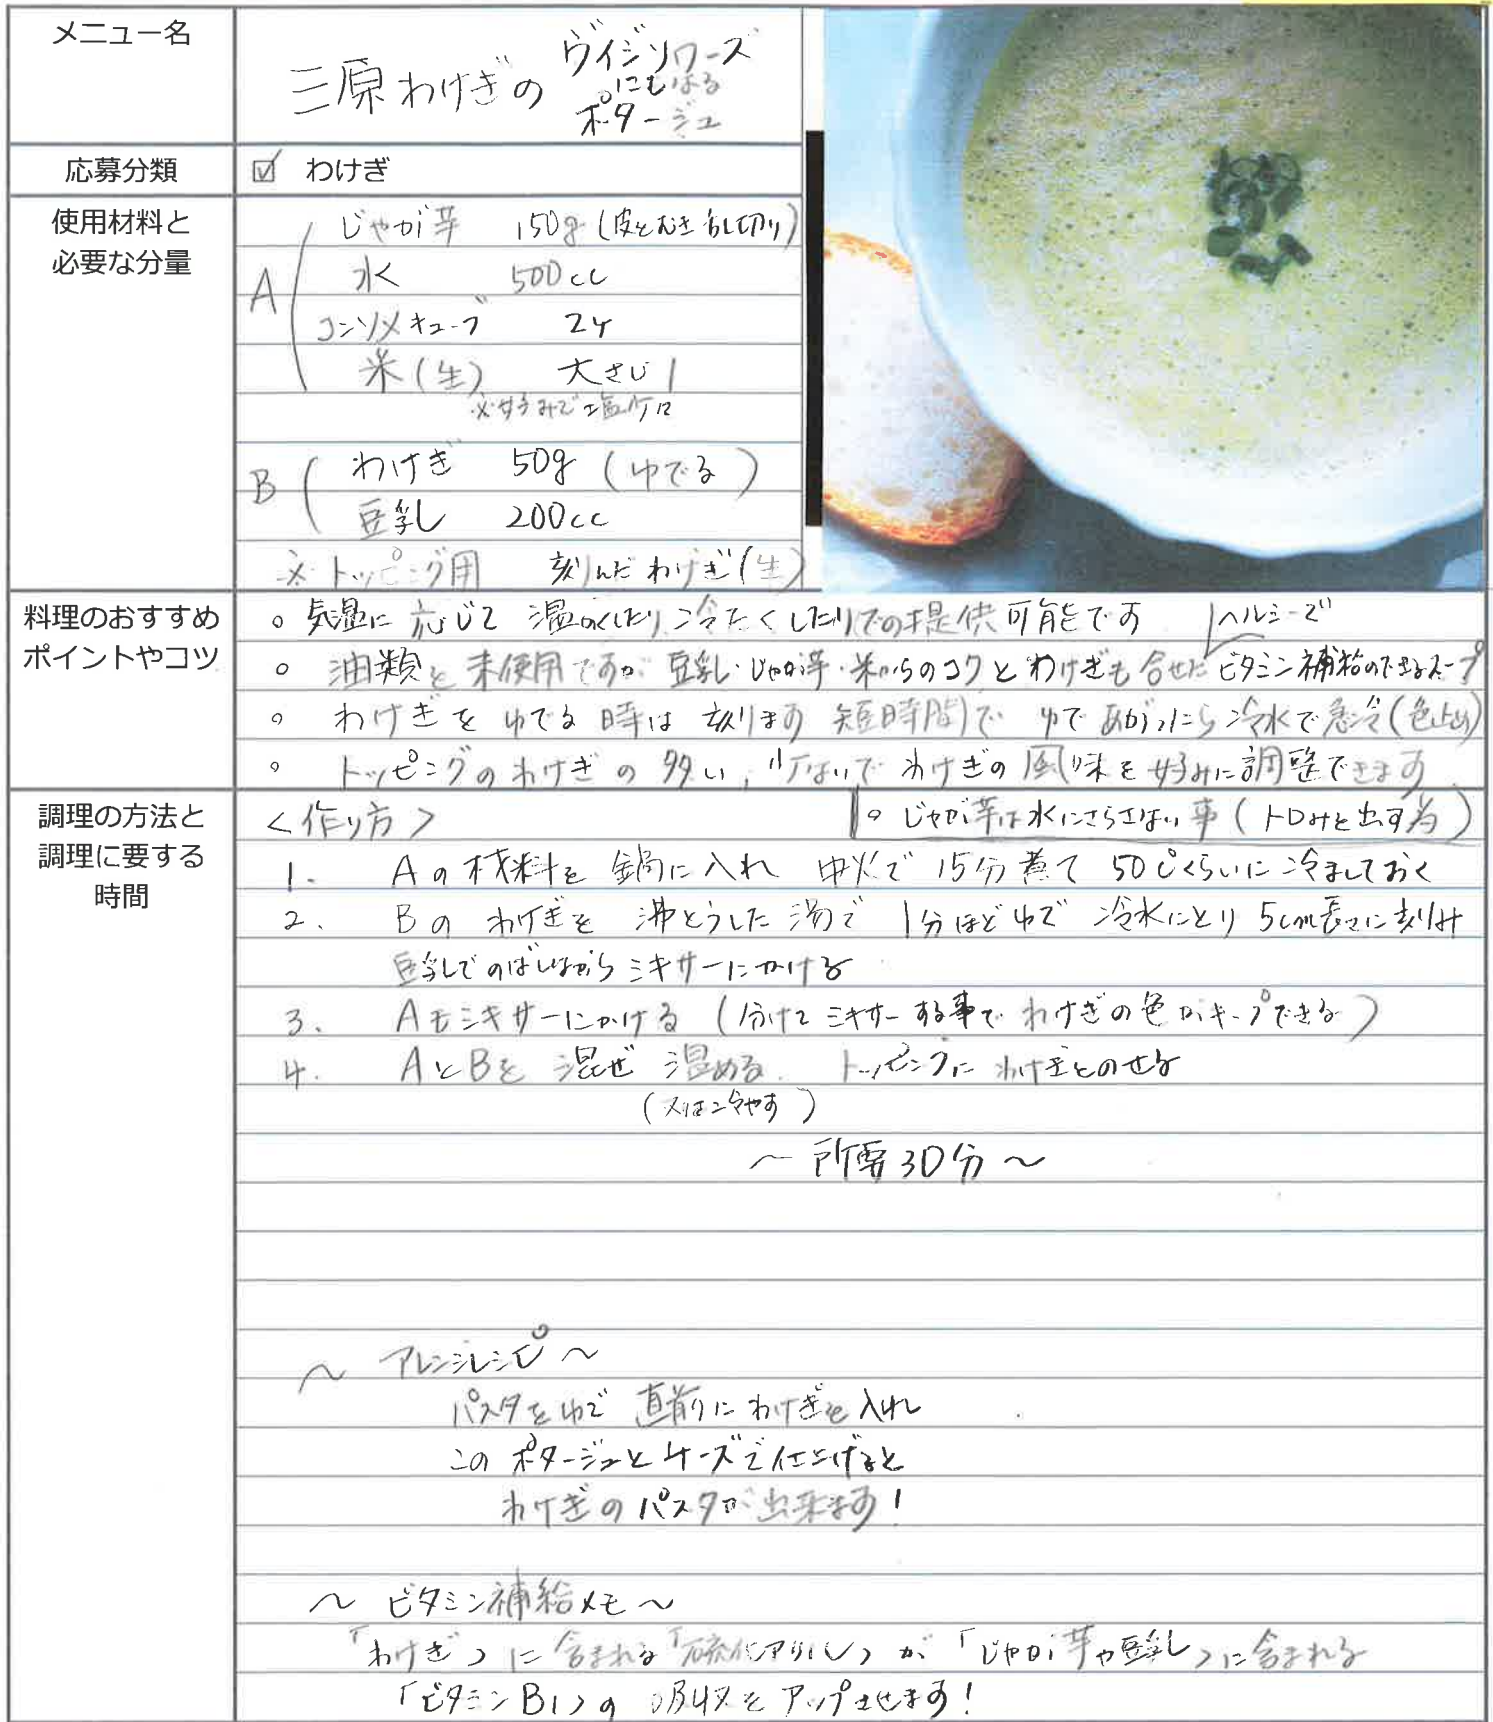 メニュー名
三原わけぎの ヴイジソワーズ
にもなる
ポタージュ
応募分類
☑ わけぎ
使用材料と
必要な分量
A
じゃが芋 150g (皮をむき 切り)
水 500cc
コンソメキューブ 2ケ
米(生) 大さじ1
※好みで塩分は
B
わけぎ 50g (ゆでる)
豆乳 200cc
※トッピング用 刻んだわけぎ(生)
料理のおすすめ
ポイントやコツ
○ 気温に応じて 温かくしたり冷たくしたりでの提供可能です
ヘルシーで
○ 油類を未使用ですが 豆乳・じゃが芋・米からのコクとわけぎも合せた ビタミン補給のできるスープ
○ わけぎをゆでる時は 刻まず 短時間で ゆであがったら冷水で急冷(色止め)
○ トッピングのわけぎの多い、少ないで わけぎの風味を好みに調整できます
○ じゃが芋は水にさらさない事(トロみを出す為)
調理の方法と
調理に要する
時間
<作り方>
1. Aの材料を 鍋に入れ 中火で 15分煮て 50℃くらいに冷ましておく
2. Bの わけぎを 沸とうした湯で 1分ほどゆで 冷水にとり 5cm長さに刻み
豆乳でのばしながらミキサーにかける
3. Aもミキサーにかける (分けてミキサーする事で わけぎの色がキープできる)
4. AとBを 混ぜ 温める. トッピングに わけぎをのせる
(又は冷やす)
～ 所要30分 ～
～ アレンジレシピ ～
パスタをゆで 直前にわけぎを入れ
このポタージュとチーズで仕上げると
わけぎのパスタが出来ます!
～ ビタミン補給メモ ～
「わけぎ」に含まれる「硫化アリル」が「じゃが芋や豆乳」に含まれる
「ビタミンB1」の吸収をアップさせます!